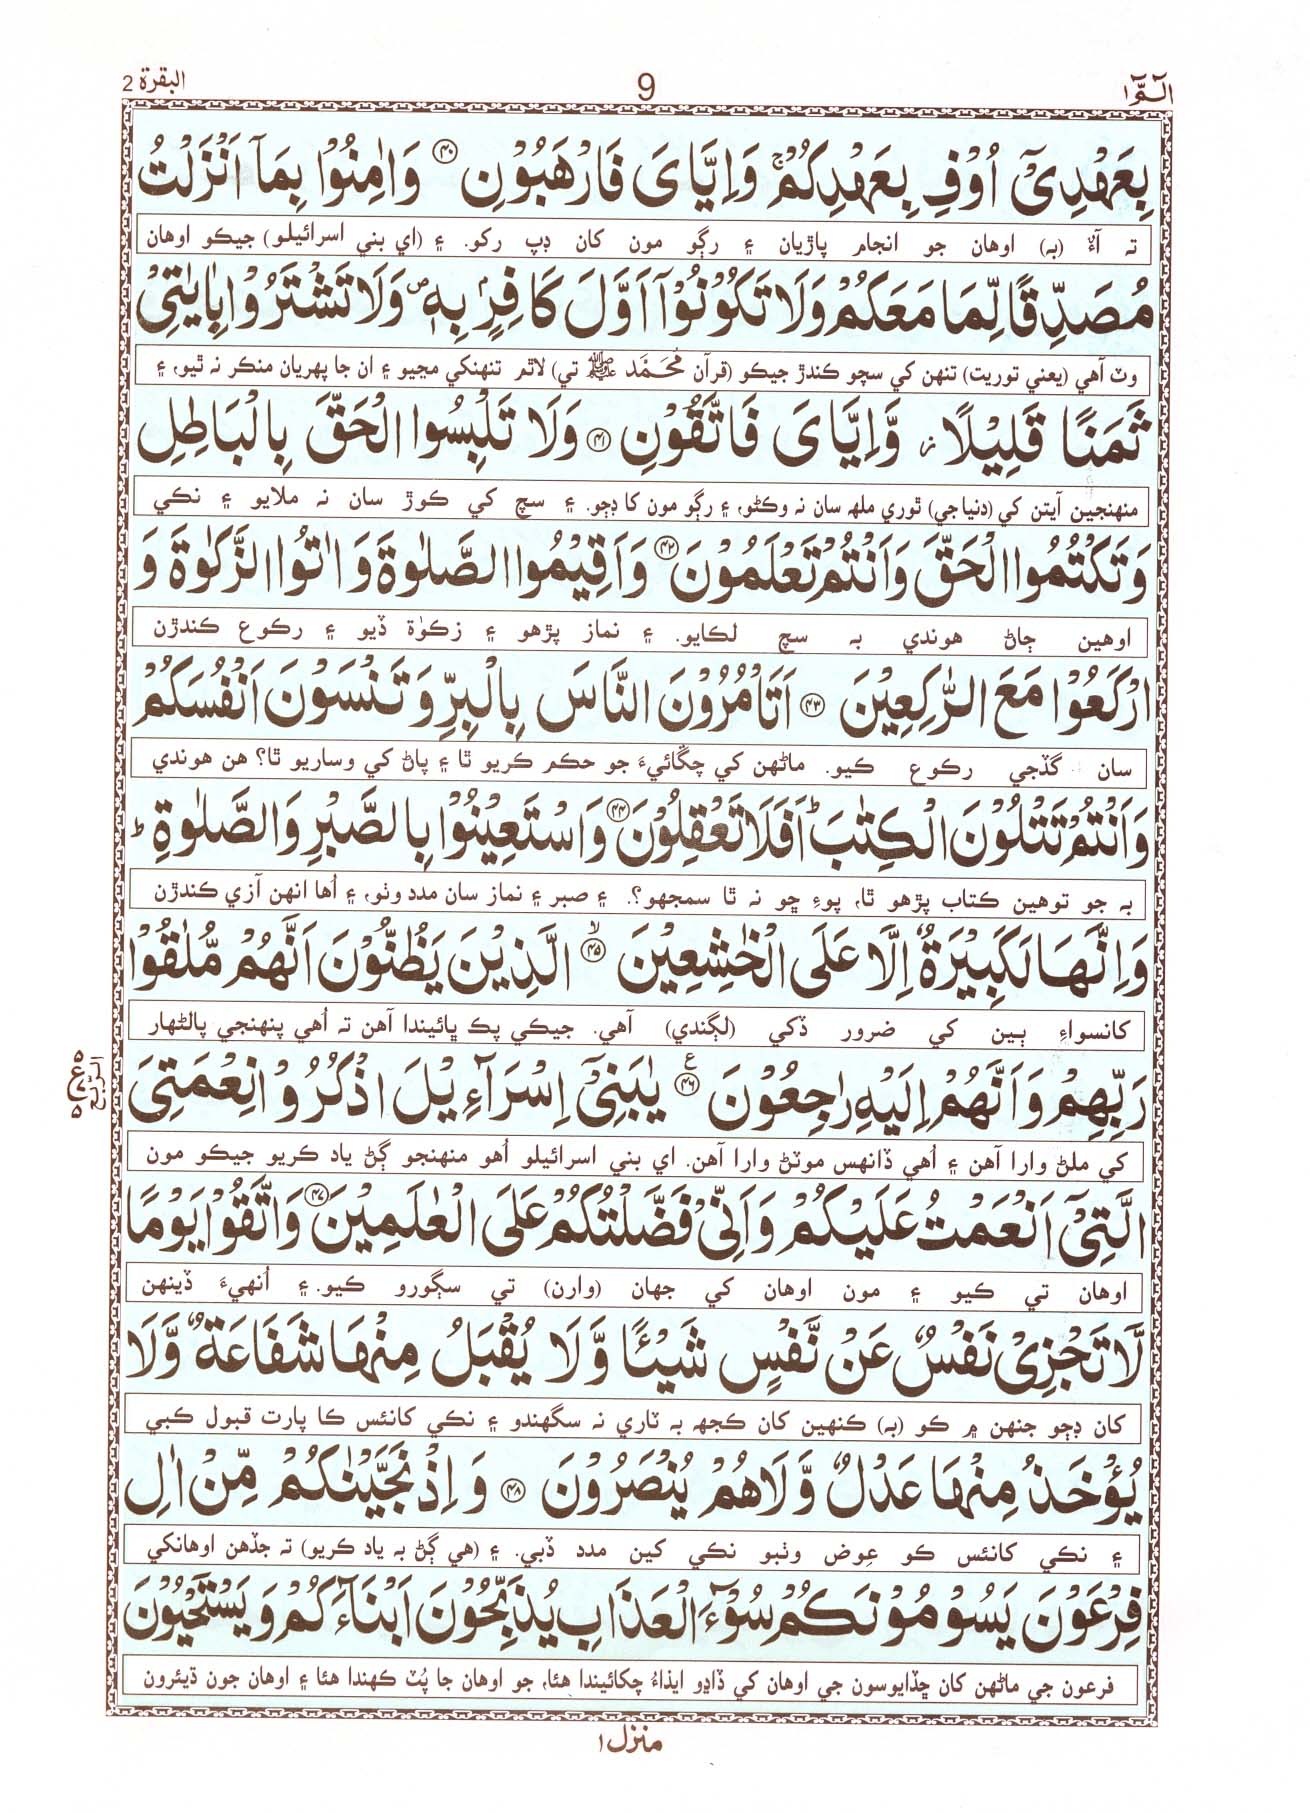 الٓـمّٓ ١
9
البقرة 2
بِعَهْدِيْٓ اُوْفِ بِعَهْدِكُمْ ۚ وَاِيَّايَ فَارْهَبُوْنِ ۝۴۰ وَاٰمِنُوْا بِمَآ اَنْزَلْتُ
ته آءٌ (به) اوهان جو انجام پاڙيان ۽ رڳو مون کان ڊپ رکو. ۽ (اي بني اسرائيلو) جيڪو اوهان
مُصَدِّقًا لِّمَا مَعَكُمْ وَلَا تَكُوْنُوْٓا اَوَّلَ كَافِرٍۢ بِهٖ ۠ وَلَا تَشْتَرُوْا بِاٰيٰتِيْ
وٽ آهي (يعني توريت) تنهن کي سچو ڪندڙ جيڪو (قرآن مُحَمَّد ﷺ تي) لاٿم تنهنکي مڃيو ۽ ان جا پهريان منڪر نه ٿيو، ۽
ثَمَنًا قَلِيْلًا ۡ وَّاِيَّايَ فَاتَّقُوْنِ ۝۴۱ وَلَا تَلْبِسُوا الْحَقَّ بِالْبَاطِلِ
منهنجين آيتن کي (دنيا جي) ٿوري ملهہ سان نه وڪڻو، ۽ رڳو مون کا ڊڄو. ۽ سچ کي ڪوڙ سان نه ملايو ۽ نڪي
وَتَكْتُمُوا الْحَقَّ وَاَنْتُمْ تَعْلَمُوْنَ ۝۴۲ وَاَقِيْمُوا الصَّلٰوةَ وَاٰتُوا الزَّكٰوةَ وَ
اوهين ڄاڻ هوندي به سچ لڪايو. ۽ نماز پڙهو ۽ زڪوٰة ڏيو ۽ رڪوع ڪندڙن
ارْكَعُوْا مَعَ الرّٰكِعِيْنَ ۝۴۳ اَتَاْمُرُوْنَ النَّاسَ بِالْبِرِّ وَتَنْسَوْنَ اَنْفُسَكُمْ
سان گڏجي رڪوع ڪيو. ماڻهن کي چڱائيءَ جو حڪم ڪريو ٿا ۽ پاڻ کي وساريو ٿا؟ هن هوندي
وَاَنْتُمْ تَتْلُوْنَ الْكِتٰبَ ؕ اَفَلَا تَعْقِلُوْنَ ۝۴۴ وَاسْتَعِيْنُوْا بِالصَّبْرِ وَالصَّلٰوةِ ؕ
به جو توهين ڪتاب پڙهو ٿا، پوءِ ڇو نه ٿا سمجهو؟. ۽ صبر ۽ نماز سان مدد وٺو، ۽ اُها انهن آزي ڪندڙن
وَاِنَّهَا لَكَبِيْرَةٌ اِلَّا عَلَى الْخٰشِعِيْنَ ۙ۝۴۵ الَّذِيْنَ يَظُنُّوْنَ اَنَّهُمْ مُّلٰقُوْا
کانسواءِ ٻين کي ضرور ڏکي (لڳندي) آهي. جيڪي پڪ ڀائيندا آهن ته اُهي پنهنجي پالڻهار
رَبِّهِمْ وَاَنَّهُمْ اِلَيْهِ رٰجِعُوْنَ ۝۴۶ ع يٰبَنِيْٓ اِسْرَآءِيْلَ اذْكُرُوْا نِعْمَتِيَ
الربع
ع ۵
کي ملڻ وارا آهن ۽ اُهي ڏانهس موٽڻ وارا آهن. اي بني اسرائيلو اُهو منهنجو ڳڻ ياد ڪريو جيڪو مون
الَّتِيْٓ اَنْعَمْتُ عَلَيْكُمْ وَاَنِّيْ فَضَّلْتُكُمْ عَلَى الْعٰلَمِيْنَ ۝۴۷ وَاتَّقُوْا يَوْمًا
اوهان تي ڪيو ۽ مون اوهان کي جهان (وارن) تي سڳورو ڪيو. ۽ اُنهيءَ ڏينهن
لَّا تَجْزِيْ نَفْسٌ عَنْ نَّفْسٍ شَيْـًٔا وَّلَا يُقْبَلُ مِنْهَا شَفَاعَةٌ وَّلَا
کان ڊڄو جنهن ۾ ڪو (به) ڪنهين کان ڪجهہ به ٽاري نه سگهندو ۽ نڪي کانئس ڪا پارت قبول ڪبي
يُؤْخَذُ مِنْهَا عَدْلٌ وَّلَا هُمْ يُنْصَرُوْنَ ۝۴۸ وَاِذْ نَجَّيْنٰكُمْ مِّنْ اٰلِ
۽ نڪي کانئس ڪو عِوض وٺبو نڪي کين مدد ڏبي. ۽ (هي ڳڻ به ياد ڪريو) ته جڏهن اوهانکي
فِرْعَوْنَ يَسُوْمُوْنَكُمْ سُوْٓءَ الْعَذَابِ يُذَبِّحُوْنَ اَبْنَآءَكُمْ وَيَسْتَحْيُوْنَ
فرعون جي ماڻهن کان ڇڏايوسون جي اوهان کي ڏاڍو ايذاءُ چکائيندا هئا، جو اوهان جا پُٽ ڪهندا هئا ۽ اوهان جون ڌيئرون
منزل ١